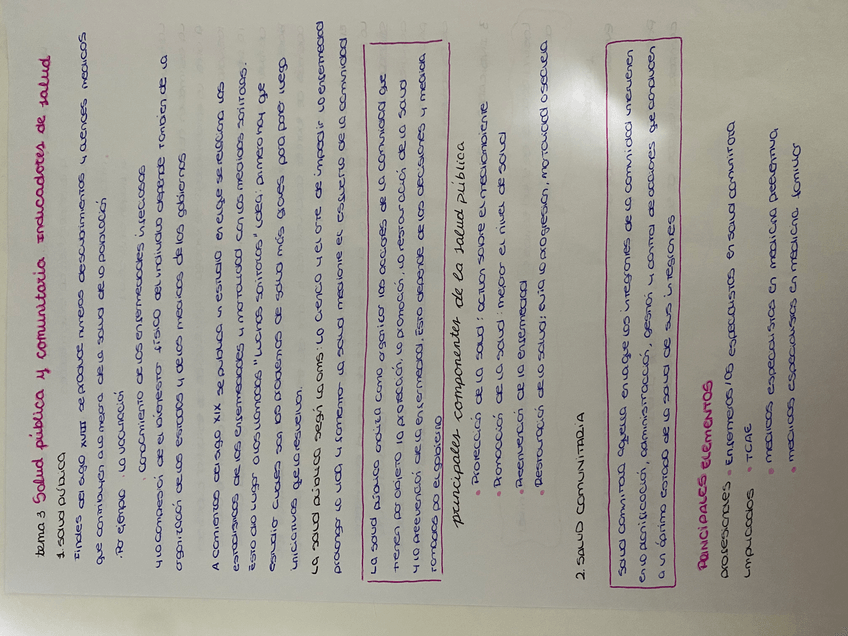 tema 3 Salud pública y comunitaria indicadores de salud
1. SALUD PÚBLICA
Findes del siglo XVIII se produce nuevas descubrimientos y avances medicos
que contribuyen a la mejora de la salud de la población
· Por ejemplo · La vacunación
· Conocimiento de las enfermedades infecciosas
y la concepción de el bienestar físico del individuo depende también de la
organización de los estados y de las medidas de los gobiernos
A comienzos del siglo XIX se publica un estudio en el que se relaciona las
estadísticas de las enfermedades y mortalidad con las medidas sanitarias.
Esto dio lugar a las llamadas "luchas sanitarias" (decir: primero hay que
estudiar cuales son los problemas de salud más graves para poner luego
iniciativas que lo resuelvan.
La salud pública según la oms: La ciencia y el arte de impedir la enfermedad
prolongar la vida y fomentar la salud mediante el esfuerzo de la comunidad
La salud pública analiza como organizar las acciones de la comunidad que
tienen por objeto la protección, la promoción, la restauración de la salud
y la preevención de la enfermedad. Esto depende de las decisiones y medida
tomadas por el gobierno
principales componentes de la salud pública
• Protección de la salud: actuan sobre el medioambiente
• Promoción de la salud: mejorar el nivel de salud
• Preenvención de la enfermedad
• Restauración de la salud: evita la progresión, mortalidad o secuela
2. SALUD COMUNITARIA
Salud comunitaria aquella en la que los integrantes de la comunidad intervienen
en la planificación, administracción, gestión y control de acciones que conducen
a un óptimo estado de la salud de sus integrantes
PRINCIPALES ELEMENTOS
profesionales • Enfermeros/as especialistas en salud comunitaria
implicados • TCAE
• medicos especialistas en medicina preventiva
• medicos especialistas en medicina familiar